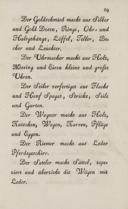 69
Der Goldschmied macht aus Silber
und Gold Dosen, Ringe, Ohr- und
Halsgehänge, Löffel, Teller, Be-
cher und Leuchter.
Der Uhrmacher macht aus Holz,
Messing und Eisen kleine und große
Uhren.
Der Seiler verfertigt aus Flachs
und Hanf Spagat, Stricke, Seile
und Gurten.
Der Wagner macht aus Holz,
Kutschen, Wägen, Karren, Pflüge
und Eggen.
Der Riemer macht aus Leder
Pferdegeschirr.
Der Sattler macht Sättel, tape-
ziert und überzieht die Wägen mit
Leder.